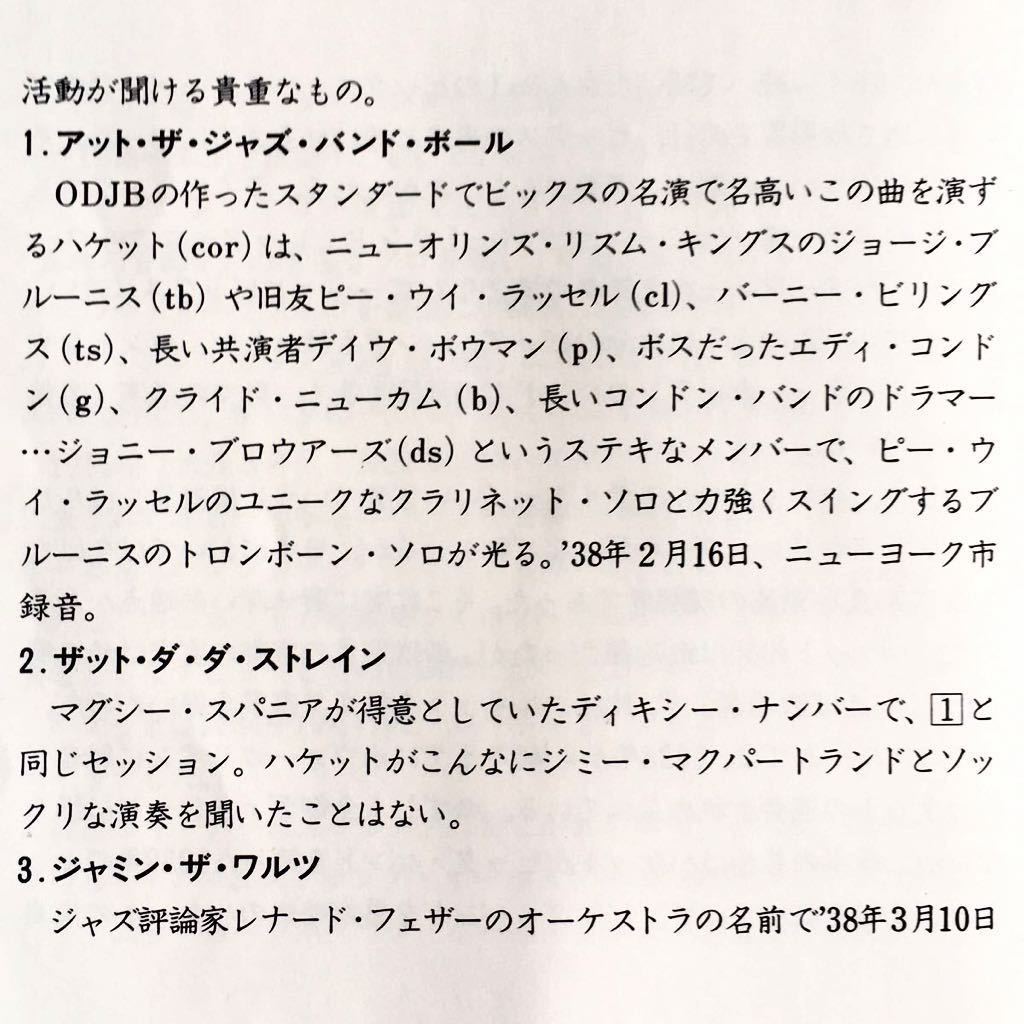 活動が聞ける貴重なもの。
1.アット・ザ・ジャズ・バンド・ボール
ODJBの作ったスタンダードでビックスの名演で名高いこの曲を演ず
るハケット(cor)は、ニューオリンズ・リズム・キングスのジョージ・ブ
ルーニス(tb)や旧友ピー・ウイ・ラッセル(cl)、バーニー・ビリング
ス(ts)、長い共演者デイヴ・ボウマン(p)、ボスだったエディ・コンド
ン(g)、クライド・ニューカム(b)、長いコンドン・バンドのドラマー
…ジョニー・ブロウアーズ(ds)というステキなメンバーで、ピー・ウ
イ・ラッセルのユニークなクラリネット・ソロと力強くスイングするブ
ルーニスのトロンボーン・ソロが光る。’38年2月16日、ニューヨーク市
録音。
2.ザット・ダ・ダ・ストレイン
マグシー・スパニアが得意としていたディキシー・ナンバーで、1と
同じセッション。ハケットがこんなにジミー・マクパートランドとソッ
クリな演奏を聞いたことはない。
3.ジャミン・ザ・ワルツ
ジャズ評論家レナード・フェザーのオーケストラの名前で’38年3月10日